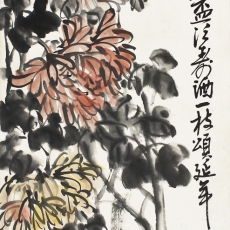 盃泛壽酒一枝頌延年